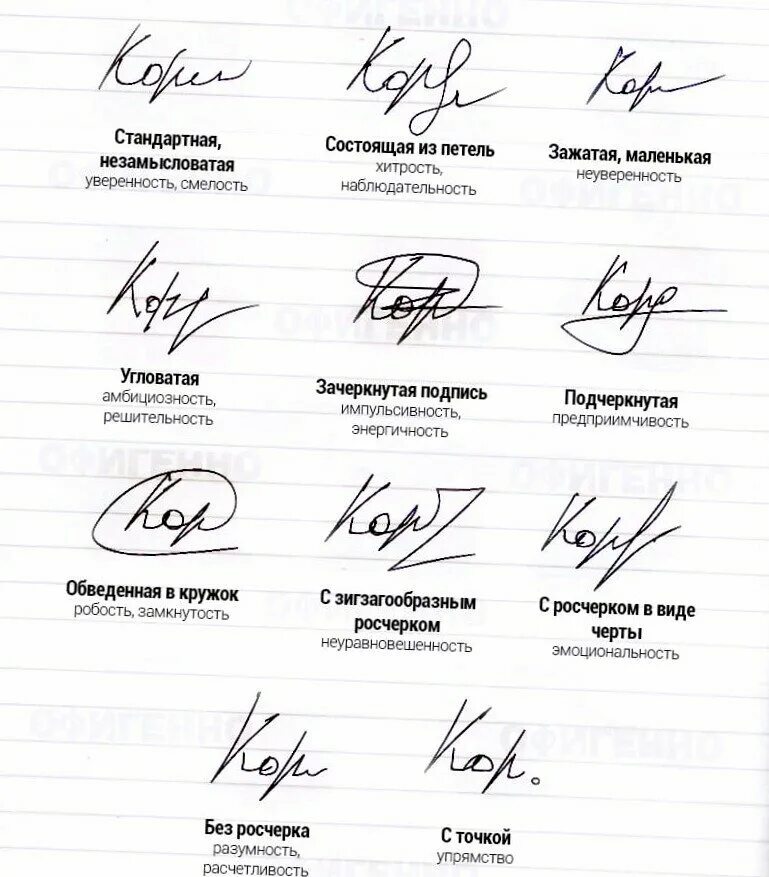 ОФИГЕННО
Кори
Кор
Кор
Стандартная,
незамысловатая
уверенность, смелость
Состоящая из петель
хитрость,
наблюдательность
Зажатая, маленькая
неуверенность
ОФИГЕННО
ОФИГЕННО
Кор
Кор
Кор
ОФИГЕННО
Угловатая
амбициозность,
решительность
Зачеркнутая подпись
импульсивность,
энергичность
Подчеркнутая
предприимчивость
ОФИГЕННО
ОФИГЕННО
Кор
Кор
Кор
Обведенная в кружок
робость, замкнутость
С зигзагообразным
росчерком
неуравновешенность
С росчерком в виде
черты
эмоциональность
ОФИГЕННО
ОФИГЕННО
Кор
Кор.
Без росчерка
разумность,
расчетливость
С точкой
упрямство